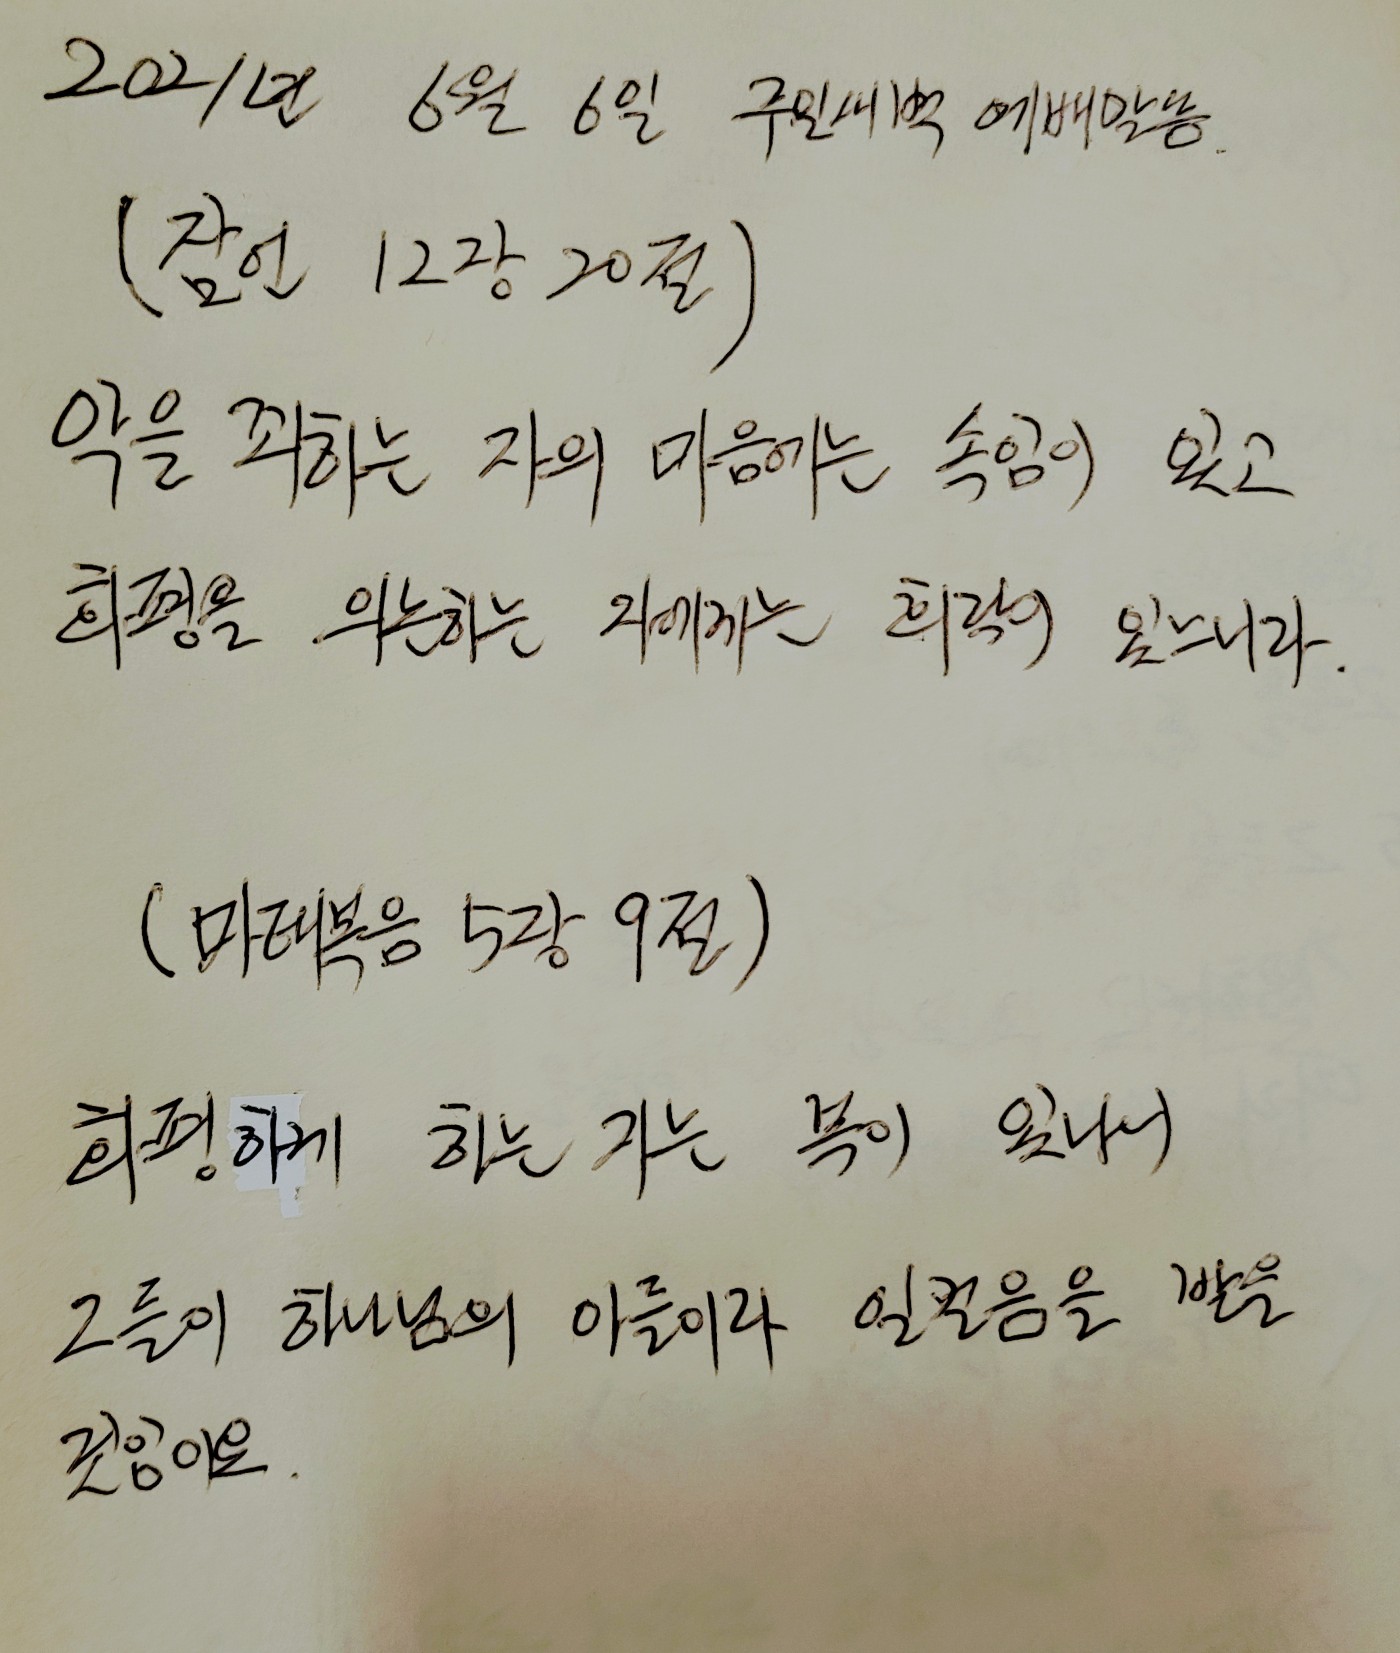 2021년 6월 6일 주일새벽 예배말씀.
(잠언 12장 20절)
악을 꾀하는 자의 마음에는 속임이 있고
희평을 의논하는 자에게는 희락이 있느니라.
(마태복음 5장 9절)
희평하게 하는 자는 복이 있나니
그들이 하나님의 아들이라 일컬음을 받을
것임이요.